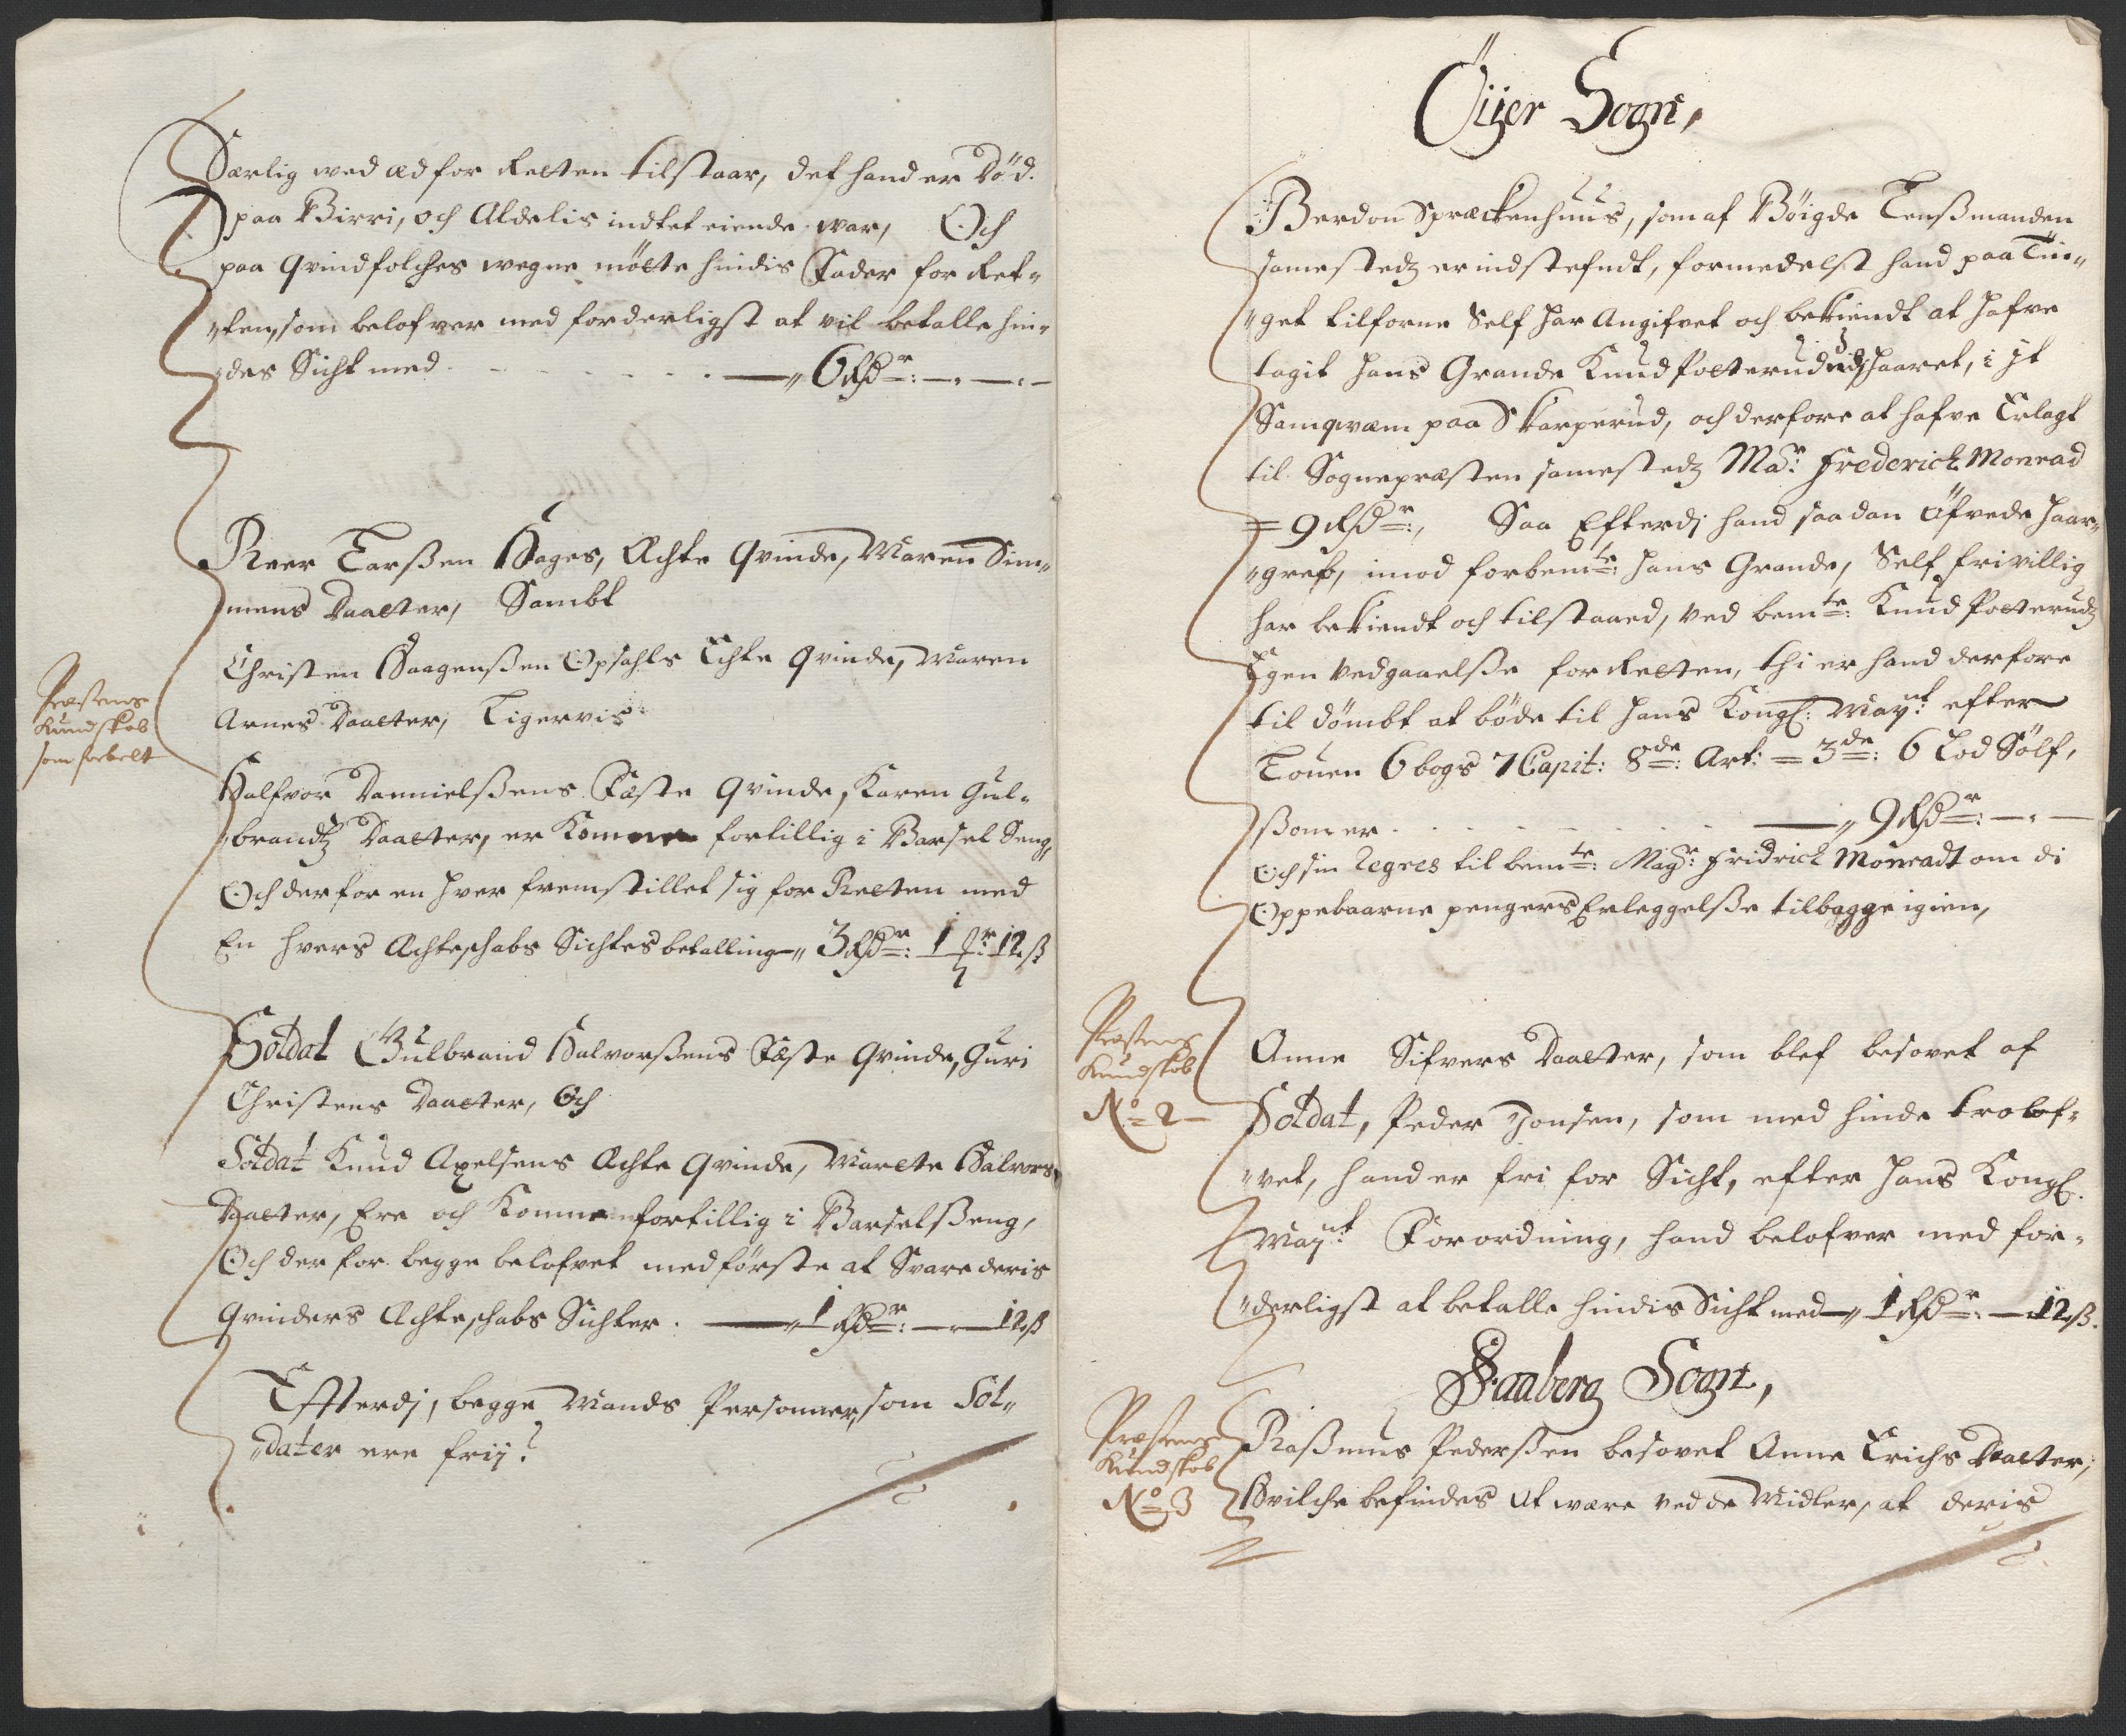 Særlig wed æd for Retten tilstaar, det hand er død.
paa Birri, och Aldelis indtet eiende war, Och
paa qvindfolches wegne møtte hindis Fader for Ret-
„ten, som belofver med forderligst at vil betalle hin-
„des Sicht med . - - - - - — „ 6 Rdr: —. —. —
Peer Larßen Hages, Ächte qvinde, Maren Sim„
„mens Daatter, Sambt
Præstens
Kundskab
som forbelt
Christen Haagenßen Opsahls Echte qvinde, Maren
Arnes Daatter, Ligervis
Halfvor Dannielßens Fæste qvinde, Karen Gul-
„brandtz Daatter, er Kommen fortillig i Barsel Seng,
Och derfor en hver fremstillet sig for Retten med
En hvers Achteschabs Sichtes betalling —„ 3 Rdr: 1 ꝛ: 12 ß
Soldat Gulbrand Halvorßens Fæste qvinde, Guri
Christens Daatter, Och
Soldat Knud Axelsens Achte qvinde, Marete Halvors
Daatter, Ere och Kommen fortillig i Barselßeng,
Och der for begge belofvet med første at Svare deris
qvinders Achteschabs Sichter. —„ 1 Rdr: — 12 ß
Effterdj, begge Mands Personner, som Sol„
„dater ere frij?
Öijer Sogn,
Berdon Spræckenhuus, som af Bøigde Lenßmanden
samestedz er indstefndt, formedelst hand paa Tin„
„get tilforne Self har Angifvet och bekiendt at hafve
tagit hans Grande Knud Potterud ved haaret, i it
Samqvæm paa Skarperud, och derfore at hafve Erlagt
til Sognepræsten samestedz Mar: Frederich Monrad
= 9 Rdr:, Saa Efterdj hand saadan öfvede haar-
„greb, imod forbemte: hans Grande, Self frivillig
har bekiendt och tilstaaed, ved bemte: Knud Potterudz
Egen vedgaaelße for Retten, thi er hand derfore
til dømbt at bøde til hans Kongl: Mayt: efter
Louen 6 bogs 7 Capit: 8de: Art: = 3de: 6 Lod Sølf,
ßom er . - - - - — „ 9 Rdr: —. —
Och sin Regres til bemte: Magr: Fridrich Monradt om di
Oppebaarne pengers Erleggelße tilbagge igien,
Præstens
Kundskab
No: 2 —
Anne Sifvers Daatter, som blef besovet af
Soldat, Peder Jonsen, som med hinde trolof-
„vet, hand er fri for Sicht, efter hans Kongl.
Mayt: Forordning, hand belofver med for-
„derligst at betalle hindis Sicht med —„ 1 Rdr: — 12 ß.
Faaberg Sogn,
Præstens
Kundskab
No: 3
Raßmus Pederßen besovet Anne Erichs Daatter,
Hvilche befindes at være ved de Midler, at deris